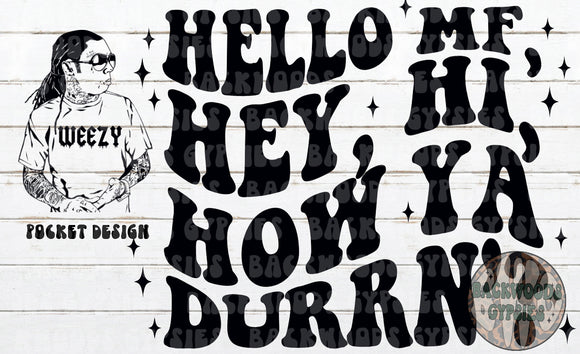 HELLO MF,
HEY, HI,
HOW YA
DURRN'
WEEZY
POCKET DESIGN
BACKWOODS
GYPSIES